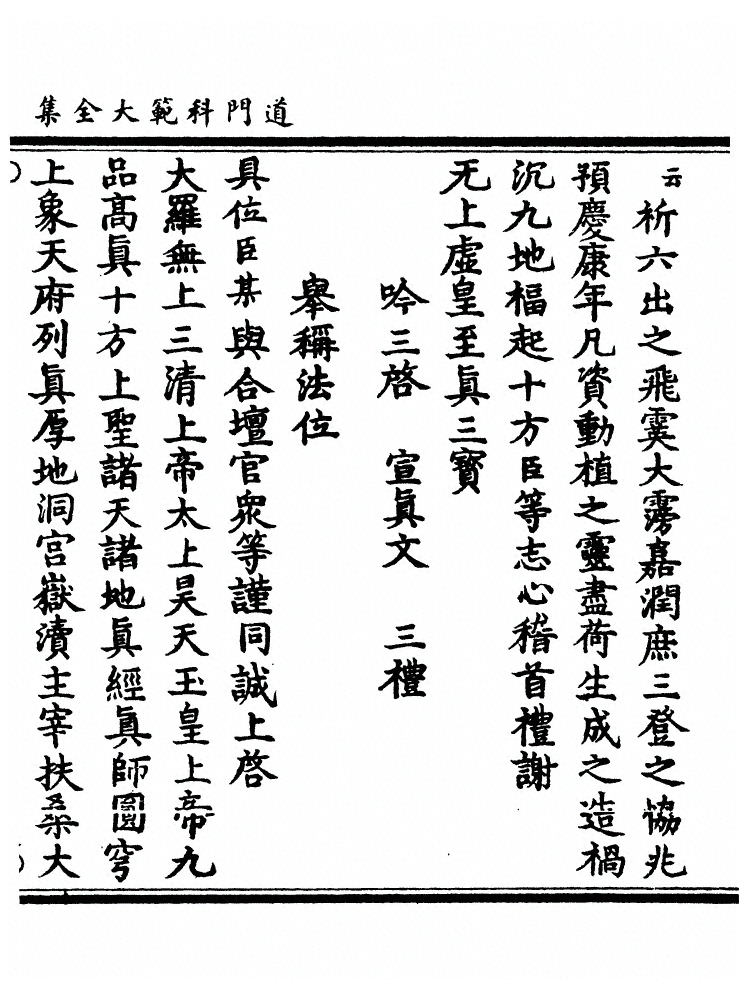 道門科範大全集
云祈六出之飛霙大霶嘉潤庶三登之恊兆
預慶康年凡資動植之靈盡荷生成之造禍
沉九地福起十方臣等志心稽首禮謝
无上虛皇至眞三寳
吟三啓　宣眞文　三禮
舉稱法位
具位臣某與合壇官衆等謹同誠上啓
大羅無上三清上帝太上昊天玉皇上帝九
品高眞十方上聖諸天諸地眞經眞師圓穹
上象天府列眞厚地洞宫嶽瀆主宰扶桑大